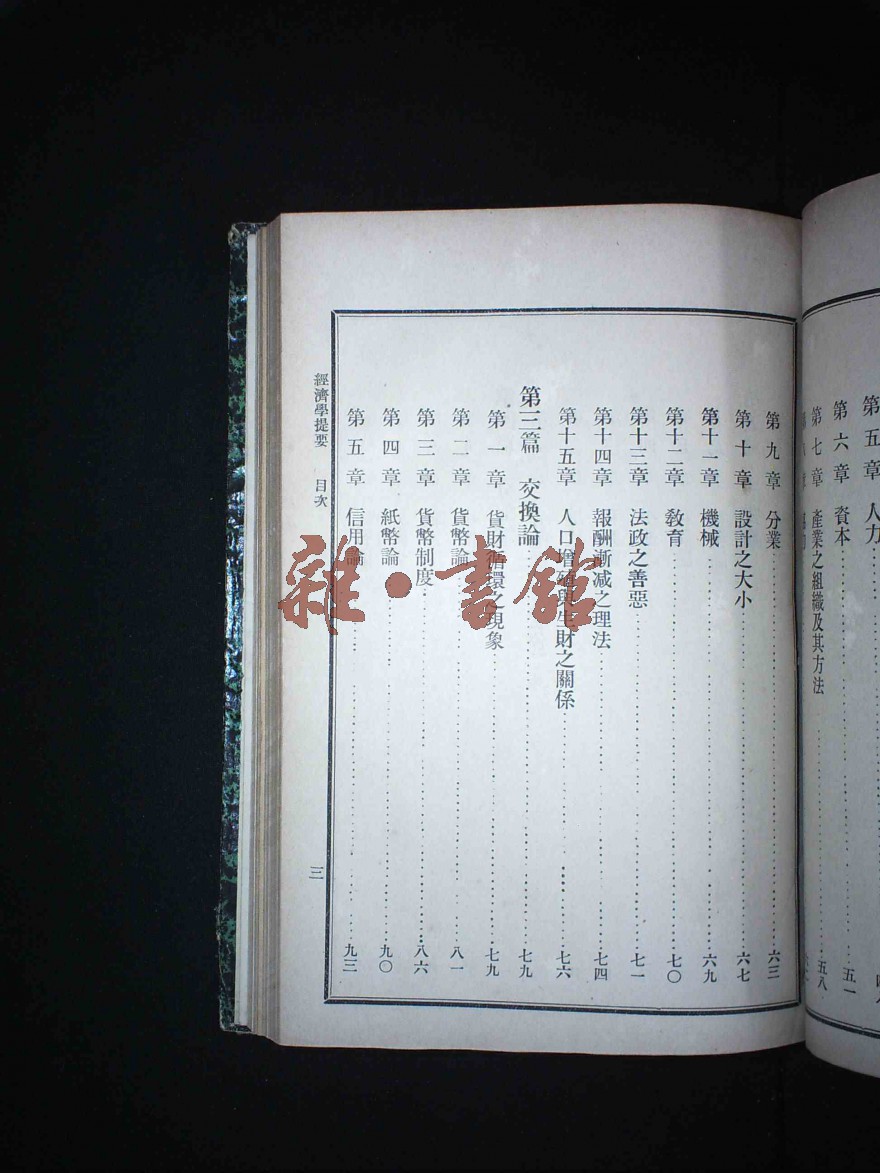 第五章 人力
第六章 資本 五一
第七章 產業之組織及其方法 五八
第九章 分業 六三
第十章 設計之大小 六七
第十一章 機械 六九
第十二章 教育 七〇
第十三章 法政之善惡 七一
第十四章 報酬漸減之理法 七四
第十五章 人口增殖與生財之關係 七六
第三篇 交換論 七九
第一章 貨財循環之現象 七九
第二章 貨幣論 八一
第三章 貨幣制度 八六
第四章 紙幣論 九〇
第五章 信用論 九三
經濟學提要 目次 三
雜·書館